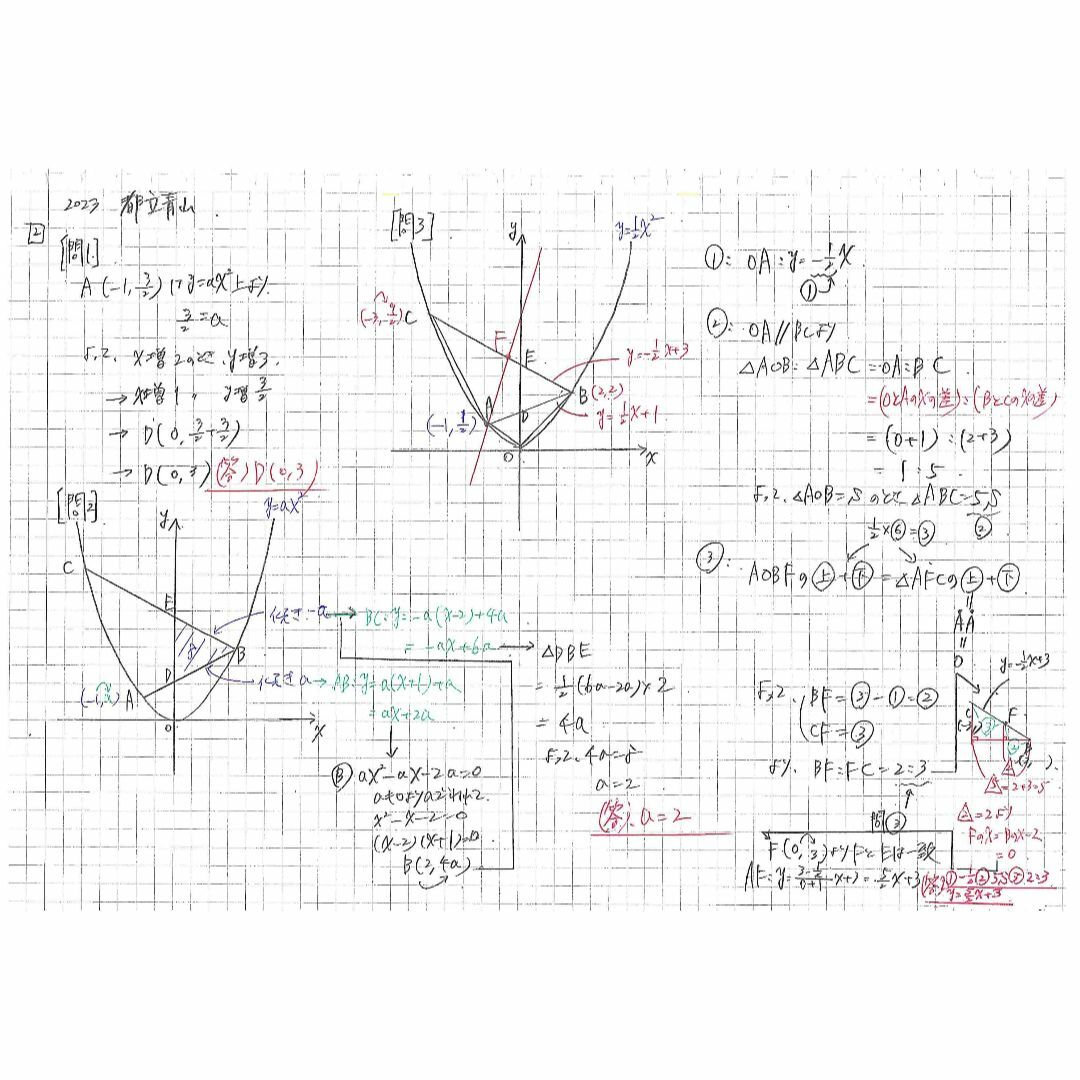 2023 都立青山
2
[問1]
A(-1, 3/2)はy=ax²上より.
3/2=a
よって, x増2のとき, y増3.
→ x増1 〃 y増3/2
→ D(0, 3/2+3/2)
→ D(0,3) (答) D(0,3)
[問2]
y
y=ax²
C
E
8
B
D
A
(-1, a)
O
x
傾き -a → BC: y=-a(x-2)+4a
= -ax+6a
傾き a → AB: y=a(x+1)+a
=ax+2a
B ax²-ax-2a=0
a≠0よりaでわって
x²-x-2=0
(x-2)(x+1)=0
B(2, 4a)
△DBE
= 1/2(6a-2a)×2
= 4a
よって, 4a=8
a=2
(答) a=2
[問3]
y
y=1/2x²
(-3, 9/2) C
F
E
y=-1/2x+3
B(2,2)
y=1/2x+1
A
(-1, 1/2)
D
O
x
①: OA: y=-1/2x
①
②: OA//BCより
△AOB:△ABC =OA:BC
=(OとAのxの差):(BとCのxの差)
= (0+1):(2+3)
= 1:5
よって, △AOB=Sのとき △ABC=5S
②
1/2×⑥=③
③: AOBFの上+下=△AFCの上+下
よって, BF=③-①=②
CF=③
より, BF:FC=2:3
問③
y=-1/2x+3
C
F
B
△=2+3=5
△=2より
Fのx=Bのx-2
=0
F(0, 3)よりFとEは一致
AF: y= (3-1/2)/(0+1) x+3 = 5/2x+3
(答) ①-1/2 ②5S ③2:3
y=5/2x+3